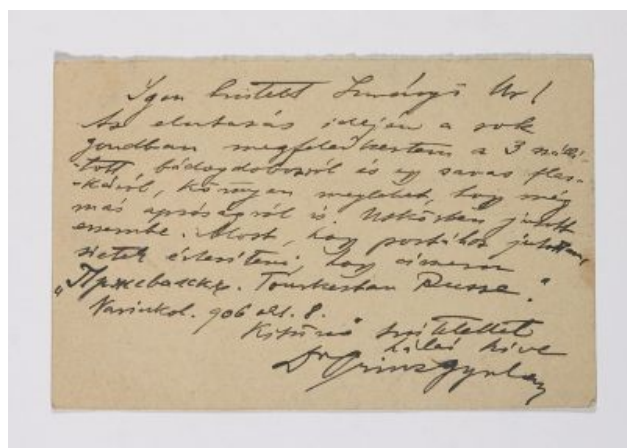 Igen tisztelt Semayer Ur!
Az elutazás idején a sok
gondban megfeledkeztem a 3 szállí-
-tott bádogdobozról és egy savas flas-
-káról, könnyen meglehet, hogy még
más apróságról is. Utközben jutott
eszembe. Most, hogy postához jutottam,
sietek értesíteni, hogy címem
"Пржевальскъ. Tourkestan Russe."
Narinkol. 906 okt. 8.
Kitünő tisztelettel
hálás híve
Dr Prinz Gyula